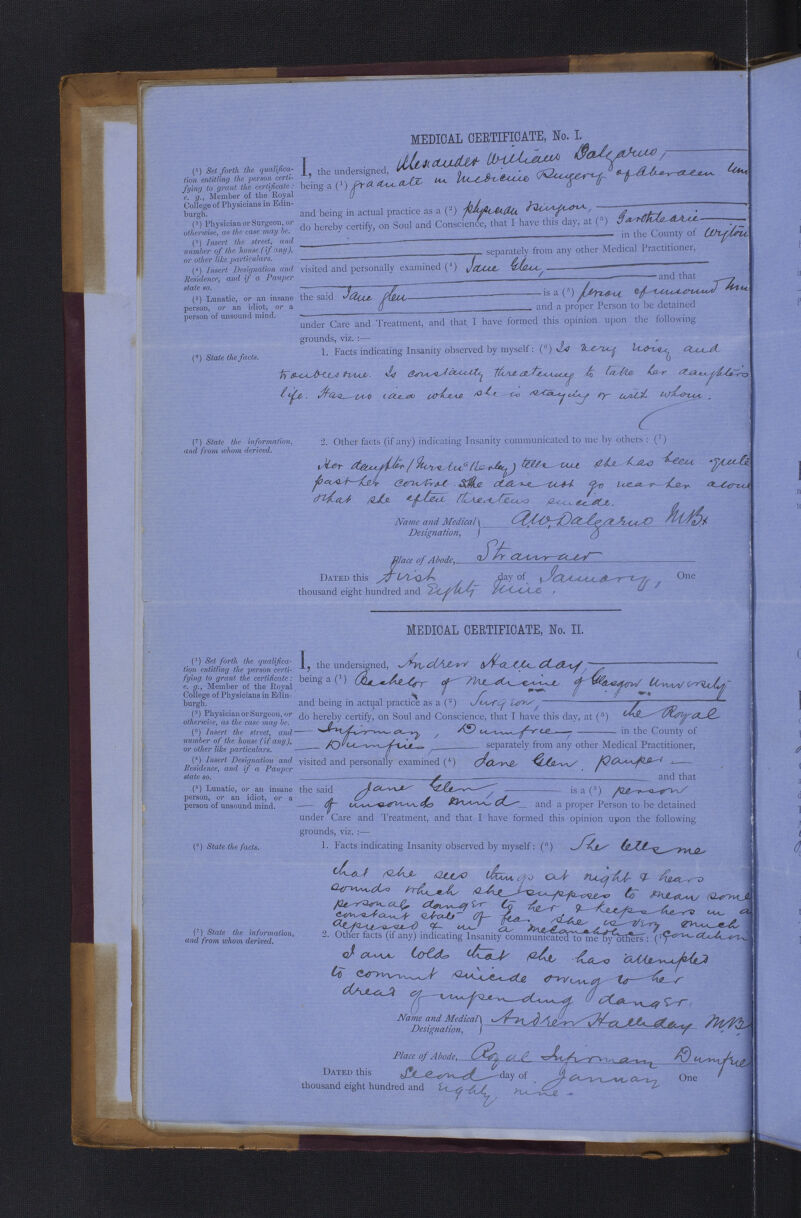 MEDICAL CERTIFICATE, No. I.
(¹) Set forth the qualifica-
tion entitling the person certi-
fying to grant the certificate:
e. g., Member of the Royal
College of Physicians in Edin-
burgh.
(²) Physician or Surgeon, or
otherwise, as the case may be.
(³) Insert the street, and
number of the house (if any),
or other like particulars.
(⁴) Insert Designation and
Residence, and if a Pauper
state so.
(⁵) Lunatic, or an insane
person, or an idiot, or a
person of unsound mind.
(⁶) State the facts.
(⁷) State the information,
and from whom derived.
I, the undersigned, Alexander William Dalgarno,
being a (¹) graduate in Medicine & Surgery of Aberdeen
and being in actual practice as a (²) physician & surgeon,
do hereby certify, on Soul and Conscience, that I have this day, at (³)
in the County of Wigton
separately from any other Medical Practitioner,
visited and personally examined (⁴) Jane Glen,
and that
the said Jane Glen is a (⁵) person of unsound
and a proper Person to be detained
under Care and Treatment, and that I have formed this opinion upon the following
grounds, viz. :—
1. Facts indicating Insanity observed by myself: (⁶) Is very noisy and
troublesome. Is constantly threatening to take her daughters
life. Has no idea where she is staying or with whom.
2. Other facts (if any) indicating Insanity communicated to me by others: (⁷)
Her daughter (Mrs ) tells me she has been quite
past her control. She dare not go near her alone
& that she often threatens suicide.
Name and Medical Designation, A.W. Dalgarno M.B.
Place of Abode, Stranraer
DATED this first day of January, One
thousand eight hundred and Eighty Nine.
MEDICAL CERTIFICATE, No. II.
(¹) Set forth the qualifica-
tion entitling the person certi-
fying to grant the certificate:
e. g., Member of the Royal
College of Physicians in Edin-
burgh.
(²) Physician or Surgeon, or
otherwise, as the case may be.
(³) Insert the street, and
number of the house (if any),
or other like particulars.
(⁴) Insert Designation and
Residence, and if a Pauper
state so.
(⁵) Lunatic, or an insane
person, or an idiot, or a
person of unsound mind.
(⁶) State the facts.
(⁷) State the information,
and from whom derived.
I, the undersigned, Andrew Halliday,
being a (¹) Bachelor of medicine of Glasgow University
and being in actual practice as a (²) Surgeon,
do hereby certify, on Soul and Conscience, that I have this day, at (³) the Royal
Infirmary, Dumfries in the County of
Dumfries, separately from any other Medical Practitioner,
visited and personally examined (⁴) Jane Glen. pauper
and that
the said Jane Glen, is a (⁵) person
of unsound mind and a proper Person to be detained
under Care and Treatment, and that I have formed this opinion upon the following
grounds, viz. :—
1. Facts indicating Insanity observed by myself: (⁶) She tells me
that she sees things at night & hears
sounds which she supposes to mean some
personal danger to her & keeps hers in a
constant state of fear. She is very much
depressed & in a melancholic condition
2. Other facts (if any) indicating Insanity communicated to me by others: (⁷)
I am told that she has attempted
to commit suicide owing to her
dread of impending danger.
Name and Medical Designation, Andrew Halliday M.B.
Place of Abode, Royal Infirmary Dumfries
DATED this Second day of January One
thousand eight hundred and eighty nine.